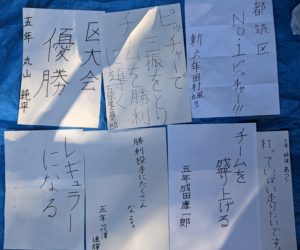 都筑区
No.1ピッチャー!!!
新六年田村
ピッチャで
三振をとり
チームを勝利
に導く
区大会
優勝
五年 丸山 純平
打っていっぱい走りたいです。
チームを
盛り上げる
五年 成田康一郎
勝利投手にたくさん
なる。
五年 花澤
レギュラー
になる